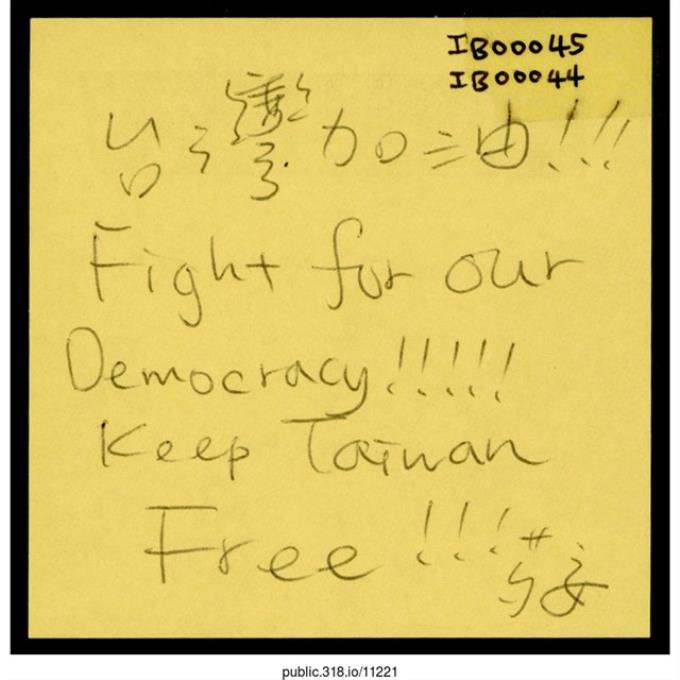 IB00045
IB00044
台灣加油!!!
Fight for our
Democracy!!!!!
Keep Taiwan
Free!!!
public.318.io/11221